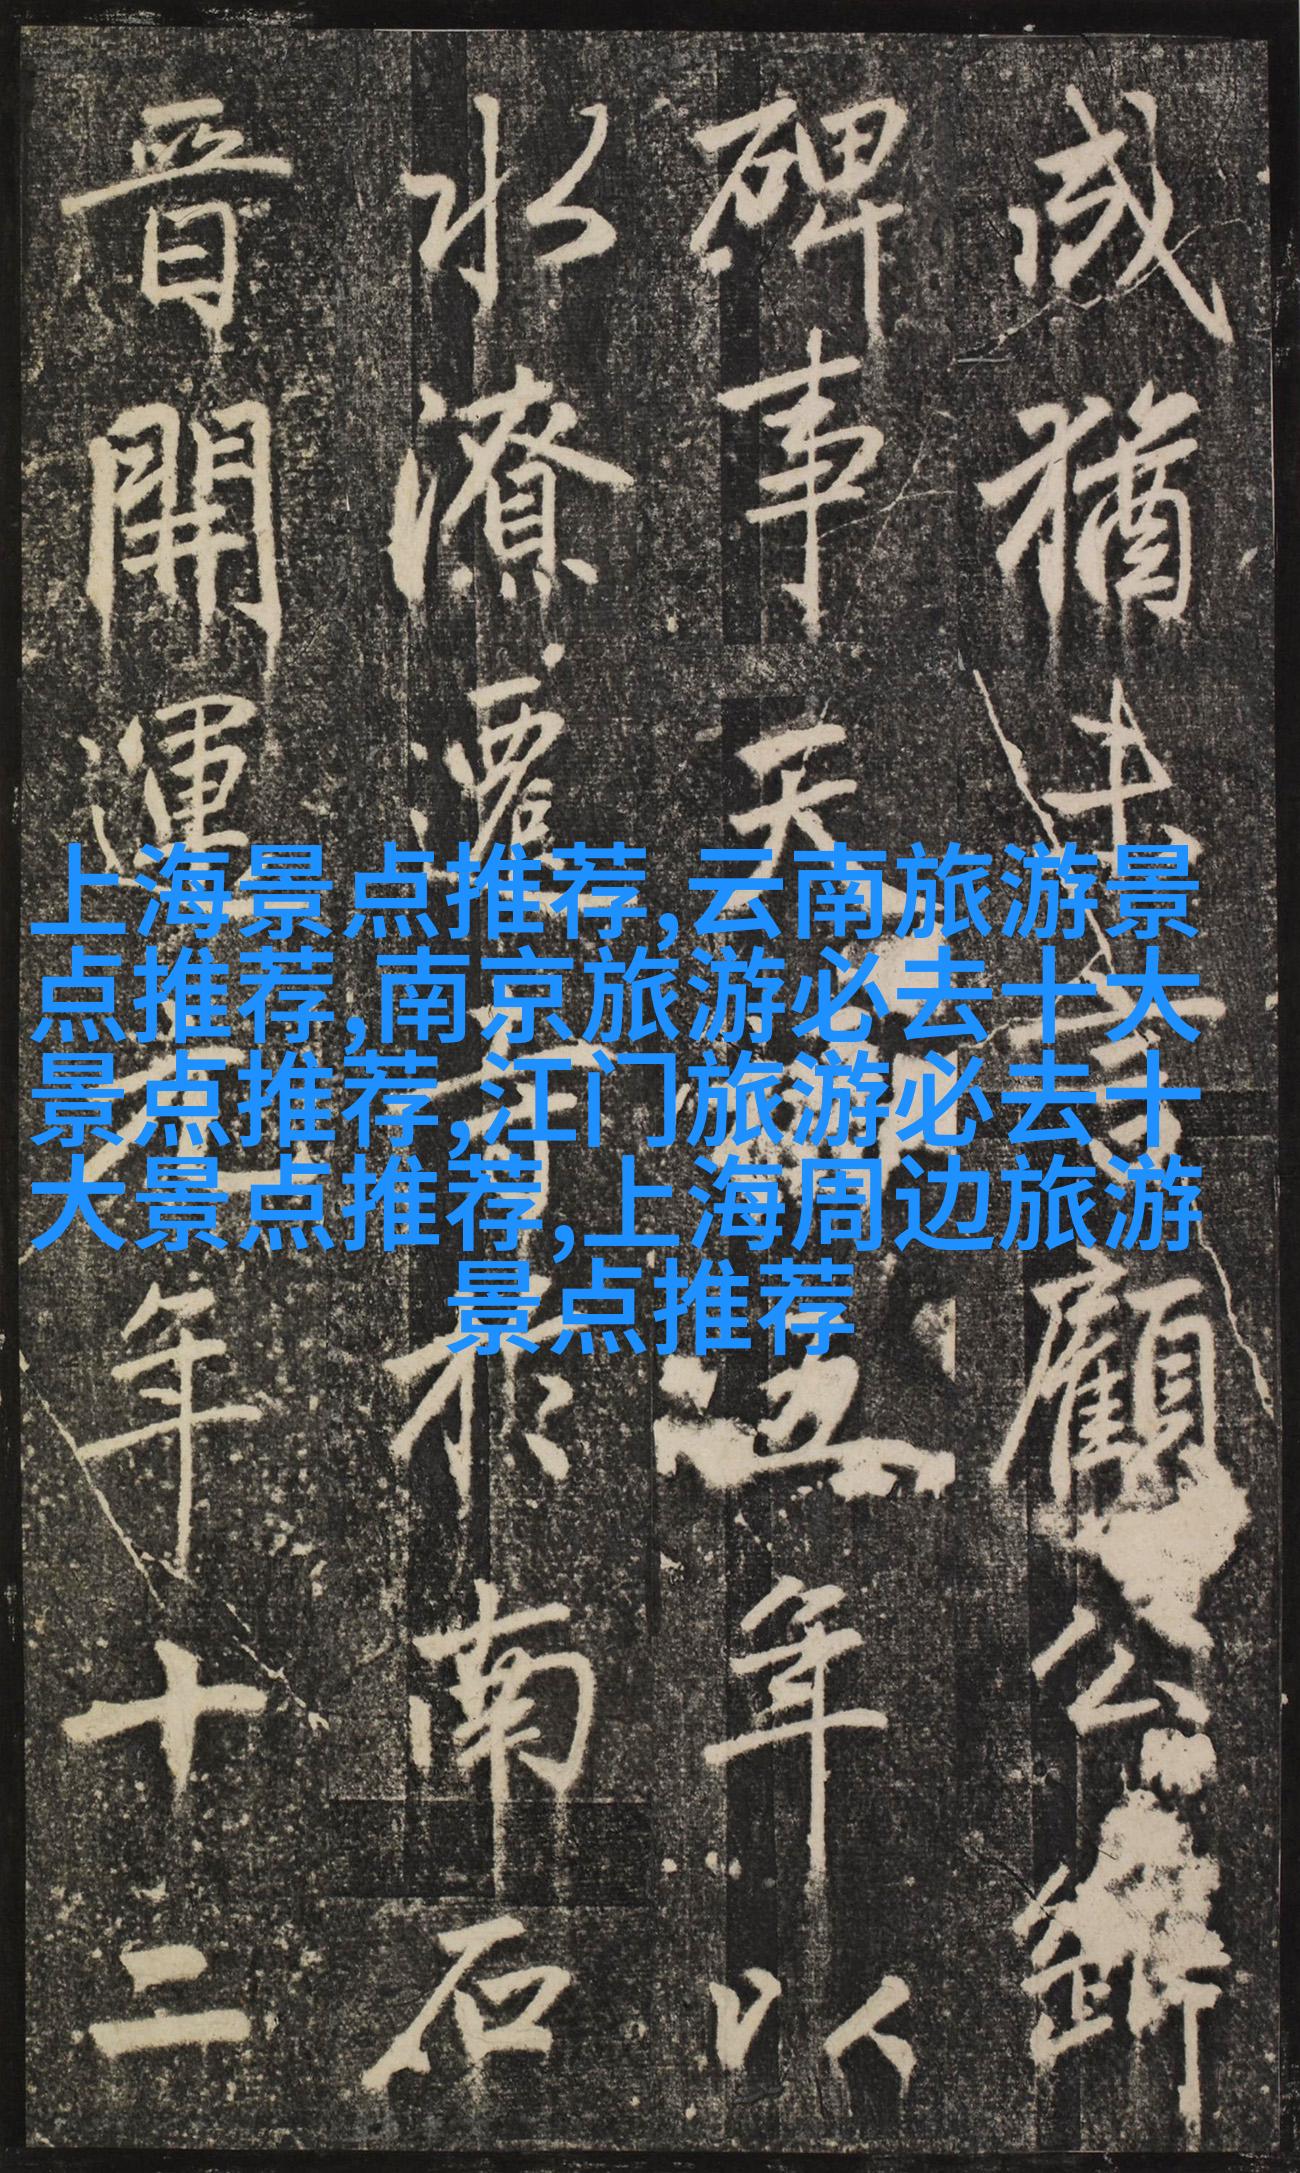 上海景点推荐,云南旅游景
点推荐,南京旅游必去十大
景点推荐,江门旅游必去十
大景点推荐,上海周边旅游
景点推荐
猶未顧公
碑事天五年以
水潦於南石
晉開運元年十二